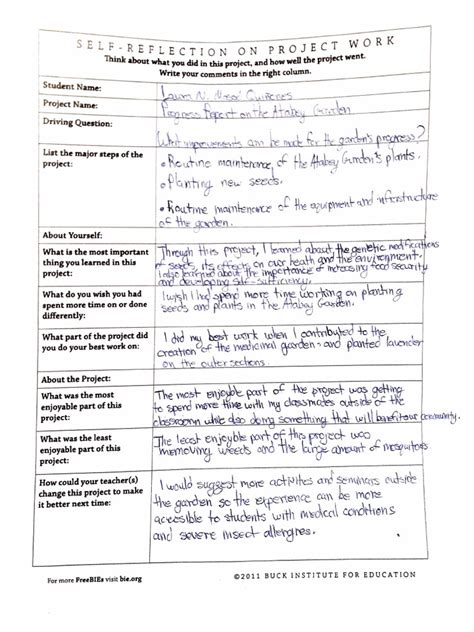 SELF-REFLECTION ON PROJECT WORK
Think about what you did in this project, and how well the project went.
Write your comments in the right column.
Student Name:
Laura N. Quiñones
Project Name:
Progress Report on the Atabey Garden
Driving Question:
What improvements can be made for the garden's progress?
List the major steps of the
project:
• Routine maintenance of the Atabey Garden's plants.
• Planting new seeds.
• Routine maintenance of the equipment and infrastructure
of the garden.
About Yourself:
What is the most important
thing you learned in this
project:
Through this project, I learned about the genetic modifications
of seeds, its effects on our heath and the environment.
I also learned about the importance of increasing food security
and developing self-sufficiency.
What do you wish you had
spent more time on or done
differently:
I wish I had spend more time working on planting
seeds and plants in the Atabey Garden.
What part of the project did
you do your best work on:
I did my best work when I contributed to the
creation of the medicinal garden and planted lavender
on the outer sections.
About the Project:
What was the most
enjoyable part of this
project:
The most enjoyable part of the project was getting
to spend more time with my classmates outside of the
classroom while also doing something that will benefit our community.
What was the least
enjoyable part of this
project:
The least enjoyable part of this project was
removing weeds and the large amount of mosquitoes
How could your teacher(s)
change this project to make
it better next time:
I would suggest more activites and seminars outside
the garden so the experience can be more
accesible to students with medical conditions
and severe insect allergies.
For more FreeBIEs visit bie.org
©2011 BUCK INSTITUTE FOR EDUCATION